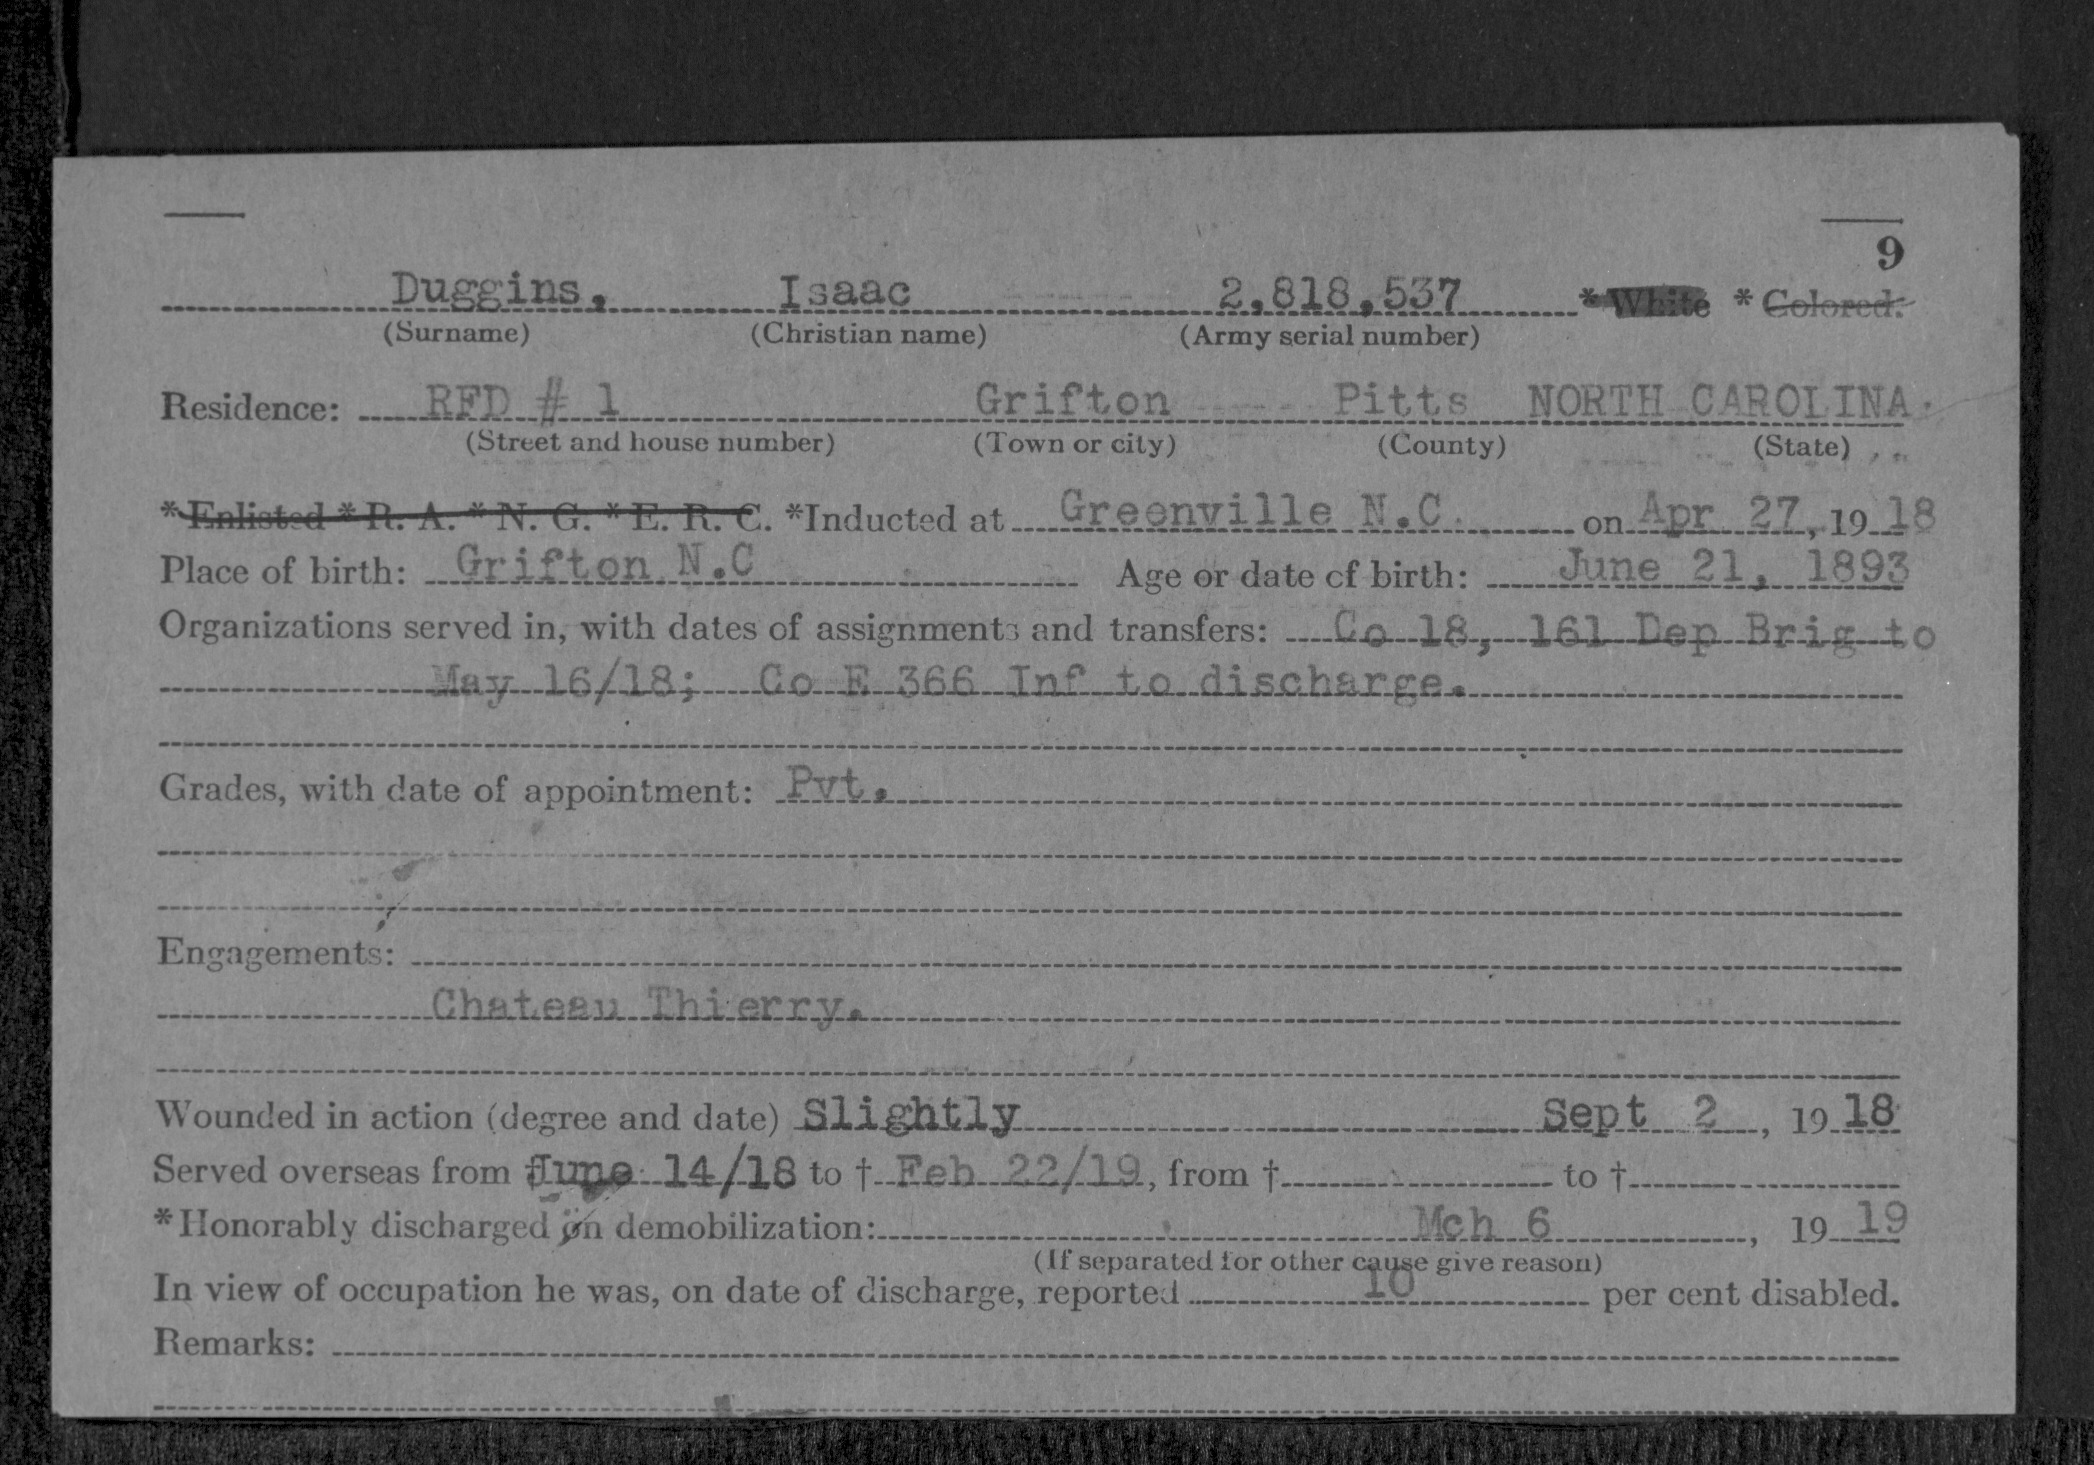 9
Duggins, Isaac 2,818,537 *White *Colored.
(Surname) (Christian name) (Army serial number)
Residence: RFD # 1 Grifton Pitts NORTH CAROLINA.
(Street and house number) (Town or city) (County) (State)
*Enlisted *R. A. *N. G. *E. R. C. *Inducted at Greenville N.C. on Apr 27, 1918
Place of birth: Grifton N.C Age or date of birth: June 21, 1893
Organizations served in, with dates of assignments and transfers: Co 18, 161 Dep Brig to
May 16/18; Co E 366 Inf to discharge.
Grades, with date of appointment: Pvt.
Engagements:
Chateau Thierry.
Wounded in action (degree and date) Slightly Sept 2, 1918
Served overseas from † June 14/18 to † Feb 22/19, from † to †
*Honorably discharged on demobilization: Mch 6, 1919
(If separated for other cause give reason)
In view of occupation he was, on date of discharge, reported 10 per cent disabled.
Remarks: